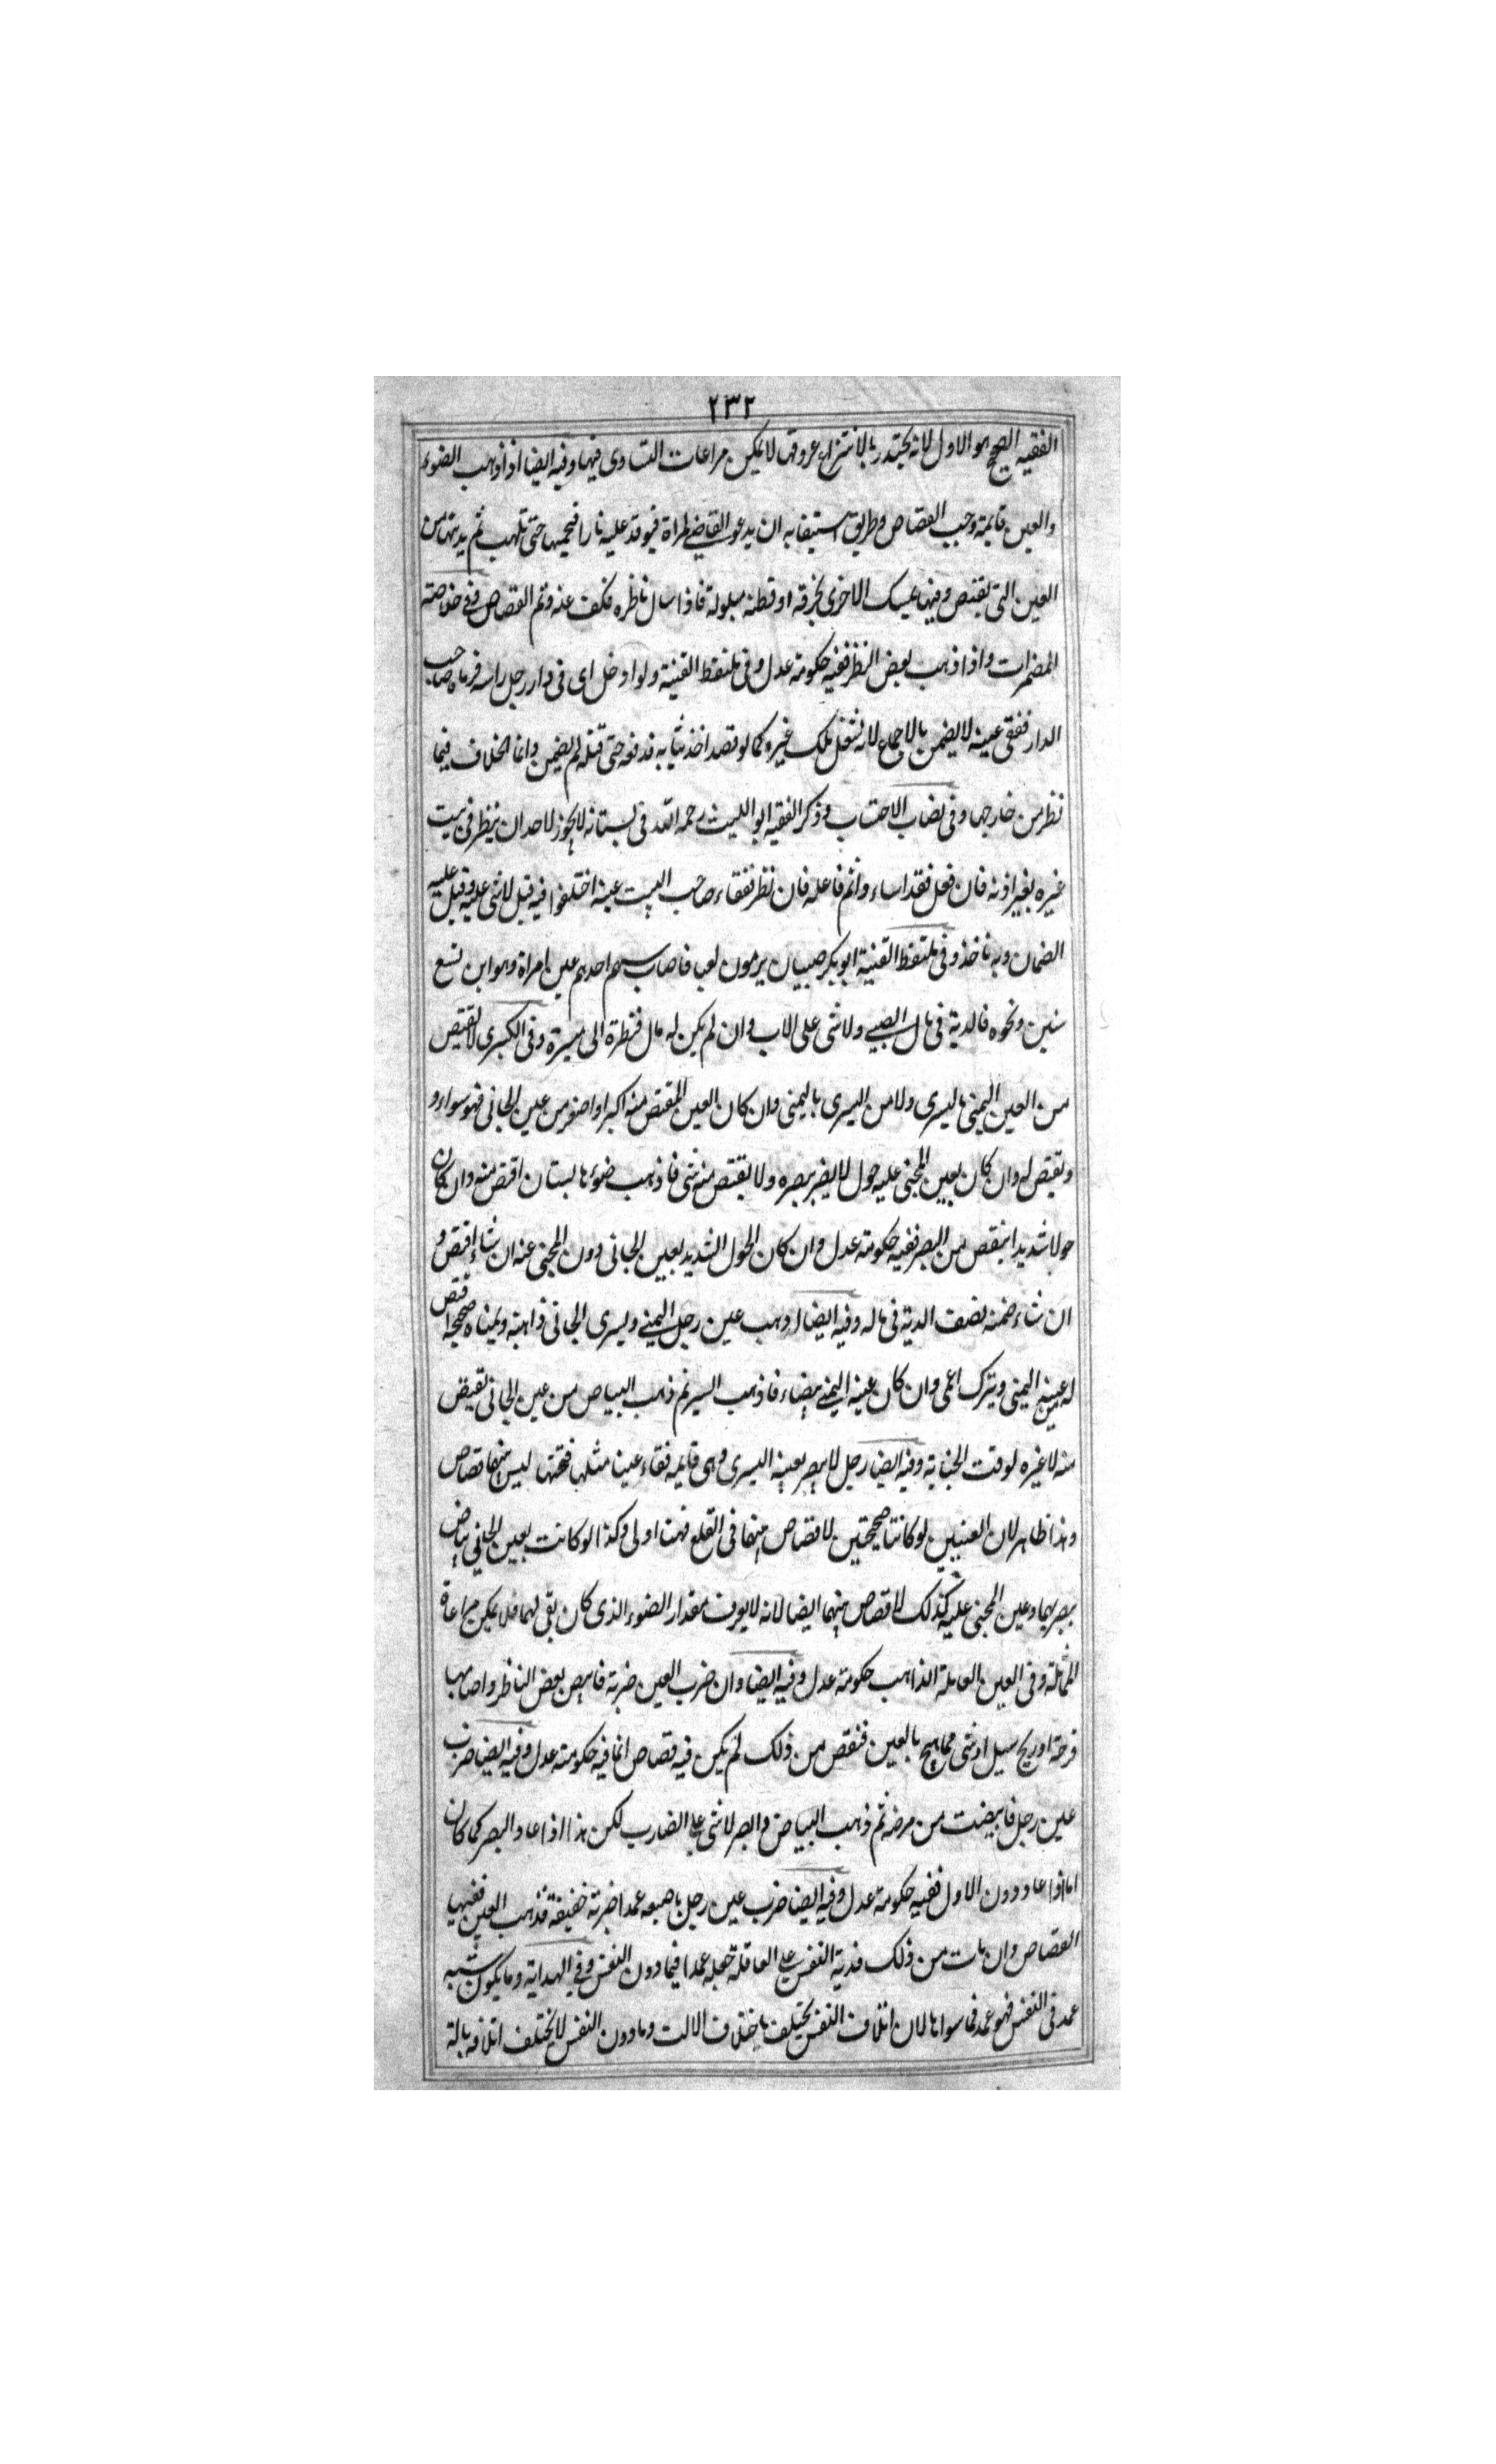 ٢٣٢
الفقيه الصحيح هو الاول لانه بالانتزاع عروق لا يمكن مراعات التساوى فيها وفيه ايضا اذا ذهب الضوء
والعين قايمة وجب القصاص وطريق استيفايه ان يدعو القاضي امراة فيوقد عليه نارا فيحميها حتى تلهب ثم يدينها من
العين التى يقتص وفيها يمسك الاخرى بخرقة او قطنة مبلولة فاذا سال ناظره فكف عنه وتم القصاص وفى خلاصته
المضمرات واذا ذهب بعض النظر ففيه حكومة عدل وفى ملتقط القنية ولو ادخل اى فى دار رجل راسه فرماه صاحب
الدار ففقى عينه لا يضمن بالاجماع لانه شغل ملك غيره كما لو قصد اخذ ثيابه فدفعه حتى قتله لم يضمن وانما الخلاف فيما
نظر من خارجها وفى نصاب الاحتساب وذكر الفقيه ابو الليث رحمه الله فى بستانه لا يجوز لاحد ان ينظر فى بيت
غيره بغير اذنه فان فعل فقد اساء واثم فاعله فان نظر ففقاء صاحب البيت عينه اختلفوا فيه قيل لا شى عليه وقيل عليه
الضمان وبه ناخذ وفى ملتقط القنية ابو بكر صبيان يرمون لعبا فاصاب سهم احدهم عين امراة وهو ابن تسع
سنين ونحوه فالدية فى مال الصبى ولا شى على الاب وان لم يكن له مال فنظرة الى ميسرة وفى الكبرى لا تقتص
من العين اليمنى باليسرى ولا من اليسرى باليمنى وان كان العين المقتص منه اكبر او اصغر من عين الجانى فهو سواء و
و يقتص له وان كان بعين المجنى عليه حول لا يضر ببصره ولا ينقص منه شى فاذهب ضوءها لبستان اقتص منه وان كان
حولا شديدا ينقص من البصر ففيه حكومة عدل وان كان الحول الشديد بعين الجانى دون المجنى عنه ان شاء اقتص و
ان شاء ضمنه نصف الدية فى ماله وفيه ايضا اذهب عين رجل اليمنى ويسرى الجانى ذاهبة ويمناه صحيحة اقتص
له من عينه اليمنى ويترك اعمى وان كان عينه اليمنى بيضاء فاذهب اليسر ثم ذهب البياض من عين الجانى يقتص
منه لا غيره لوقت الجناية وفيه ايضا رجل لا يبصر بعينه اليسرى وهى قايمه ففقاء عينا مثلها ليس بينهما قصاص
وهذا ظاهر لان العينين لو كانتا صحيحتين لا قصاص بينهما فى القلع فهنا اولى وكذا لو كانت بعين الجانى بياض
يبصر بها وعين المجنى عليه كذلك لا قصاص بينهما ايضا لانه لا يعرف مقدار الضوء الذى كان بقى لهما فلا يمكن مراعاة
المماثلة وفى العين العاملة الذاهب حكومة عدل وفيه ايضا وان ضرب العين ضربة فابيض بعض الناظر واصابها
قرحة او ريح سبل او شى مما يهيج بالعين فنقص من ذلك لم يكن فيه قصاص انما فيه حكومة عدل وفيه ايضا ضرب
عين رجل فابيضت من مرضه ثم ذهب البياض والبصر لا شى على الضارب لكن هذا اذا عاد البصر كما كان
اما اذا عاد دون الاول ففيه حكومة عدل وفيه ايضا ضرب عين رجل باصبعه عمدا ضربة خفيفة فذهب العين ففيها
القصاص وان مات من ذلك فدية النفس على العاقلة جعله عمدا فيما دون النفس وفى الهداية وما يكون شبه
عمد فى النفس فهو عمد فيما سواها لان اتلاف النفس يختلف باختلاف الالت وما دون النفس لا يختلف اتلافه بالة